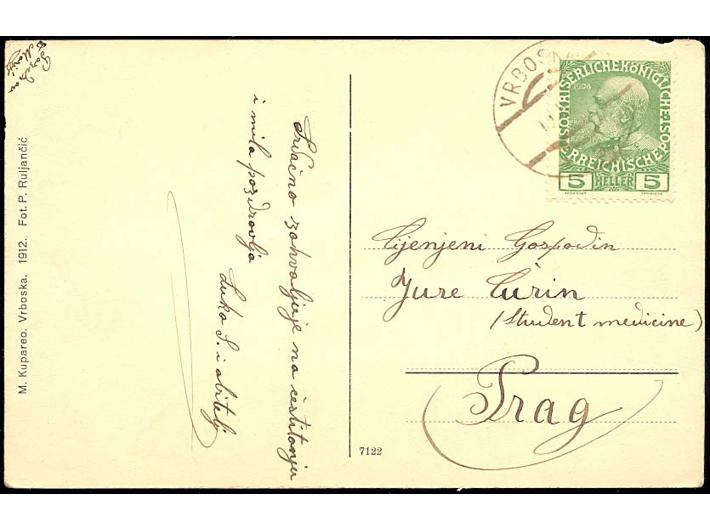 M. Kupareo. Vrboska. 1912. Fot. P. Ruljančić
Srdačno zahvaljuje na čestitanju
i mila pozdravlja
Luka S. i obitelj
7122
VRBOSKA
KAISERLICHEKÖNIGLICHE
ÖSTERREICHISCHE POST
1908
5 HELLER 5
Cijenjeni Gospodin
Jure Čurin
(student medicine)
Prag